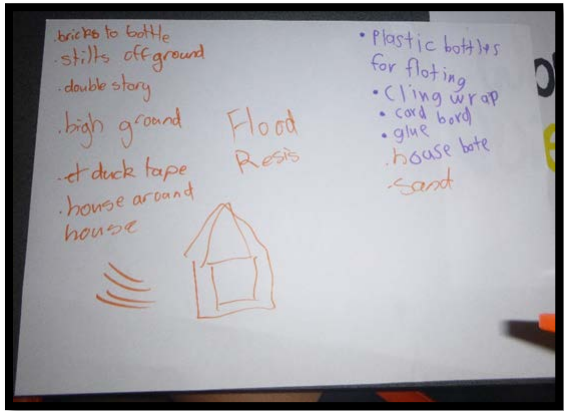 ·bricks to bottle
·stilts off ground
·double story
·high ground
·et duck tape
·house around
house
Flood
Resis
• Plastic bottles
for floting
• Cling wrap
• card bord
• glue
·house bote
·sand